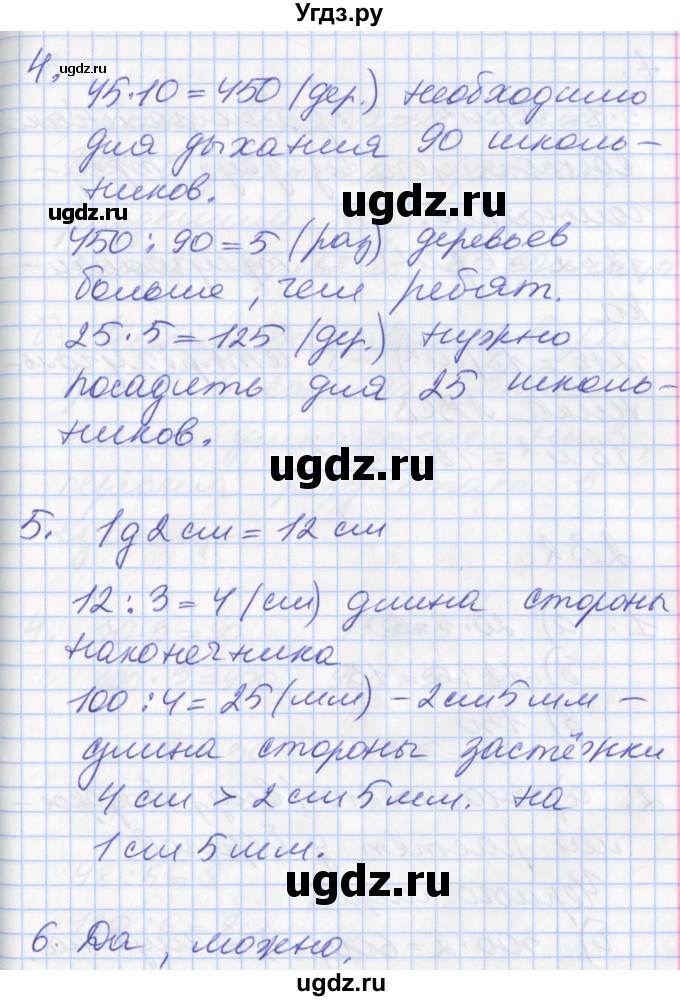 Угдз.ру
4. 45·10=450 (дер.) необходимо
ugdz.ru
для дыхания 90 школь-
ников.
ugdz.ru
ugdz.ru
450:90=5 (раз) деревьев
больше, чем ребят.
25·5=125 (дер.) нужно
посадить для 25 школь-
ников.
ugdz.ru
5. 1д2см=12см
12:3=4(см) длина стороны
наконечника
100:4=25(мм) – 2см5мм –
длина стороны застёжки
4см > 2см5мм. на
1см5мм.
ugdz.ru
6. Да, можно.
ugdz.ru